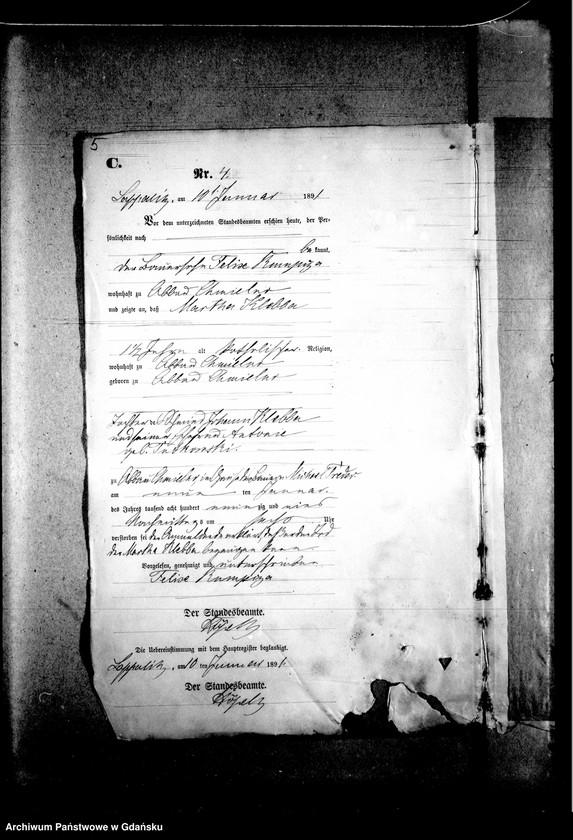 5
C.
Nr. 4.
am 10t Januar 1891
Vor dem unterzeichneten Standesbeamten erschien heute, der Per-
sönlichkeit nach
be kannt,
der Bauersohn Felix
wohnhaft zu Abbau Chmielno
und zeigte an, daß Martha Klebba
1½ Jahr alt katholischer Religion,
wohnhaft zu Abbau Chmielno
geboren zu Abbau Chmielno
Tochter des Johann Klebba
und seiner Ehefrau Antonie
geb.
zu Abbau Chmielno in Michael
am neun ten Januar
des Jahres tausend acht hundert neun zig und eins
Nachmittags um sechs Uhr
verstorben sei
der Martha Klebba
Vorgelesen, genehmigt und unterschrieben
Felix
Der Standesbeamte.
Die Uebereinstimmung mit dem Hauptregister beglaubigt.
am 10 ten Januar 1891.
Der Standesbeamte.
Archiwum Państwowe w Gdańsku